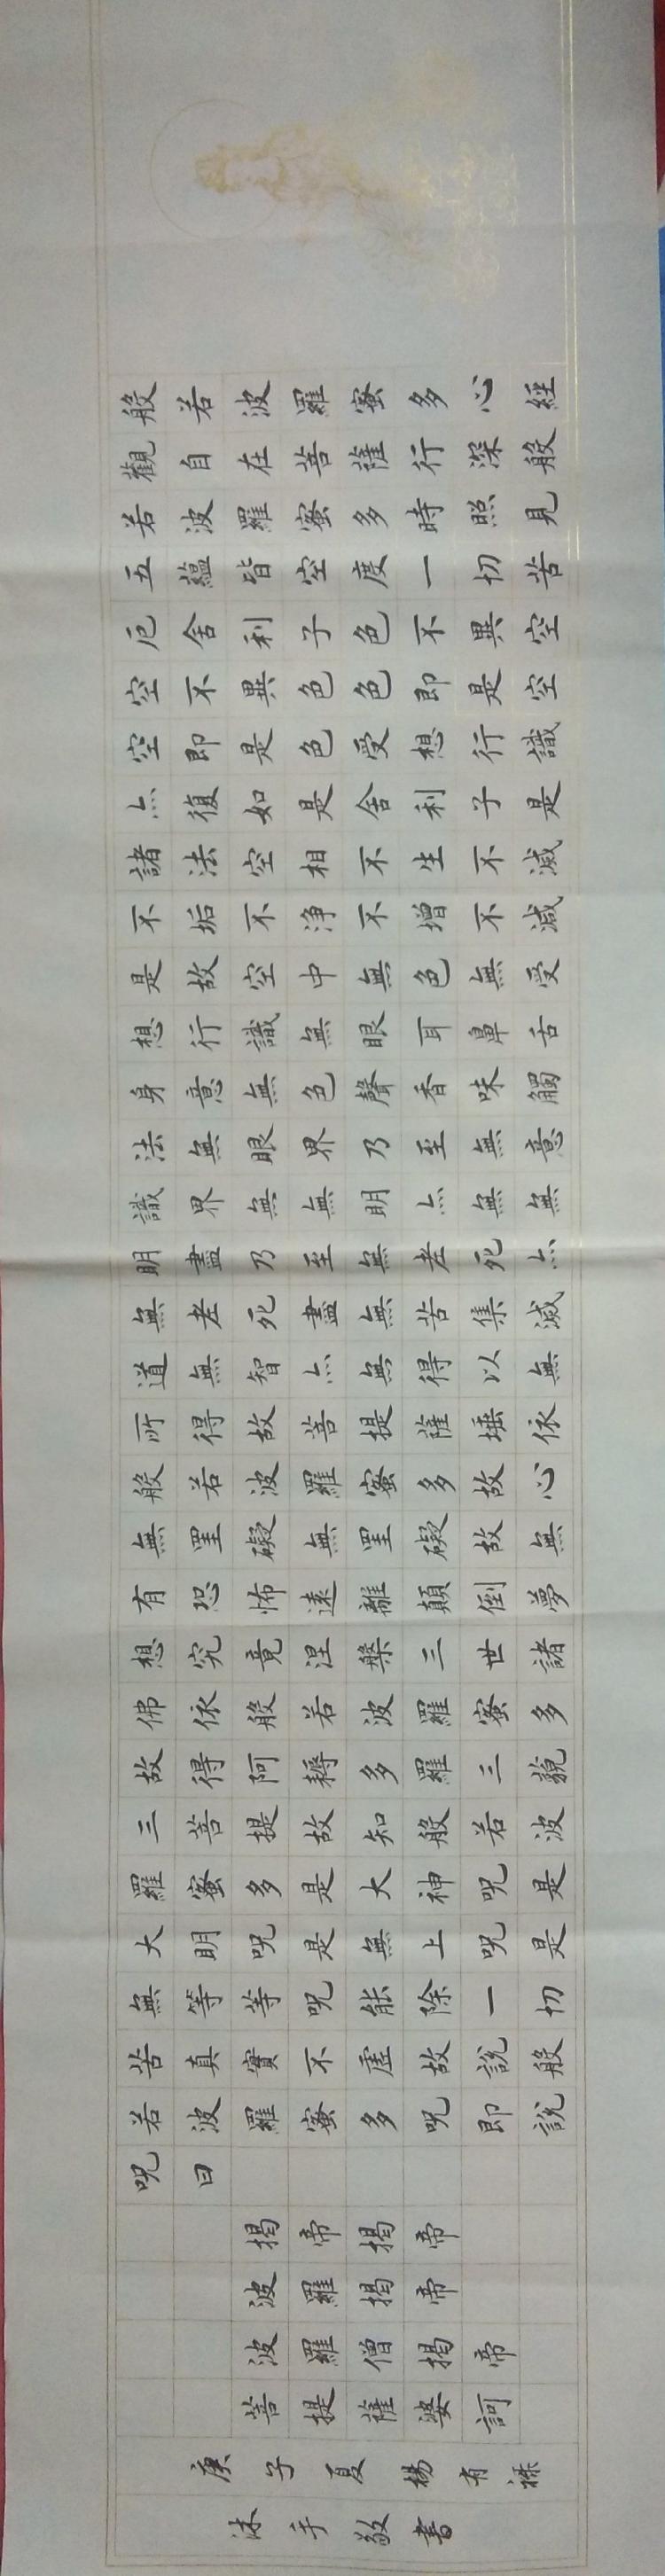 般若波羅蜜多心經
觀自在菩薩行深般
若波羅蜜多時照見
五蘊皆空度一切苦
厄舍利子色不異空
空不異色色即是空
空即是色受想行識
亦復如是舍利子是
諸法空相不生不滅
不垢不淨不增不減
是故空中無色無受
想行識無眼耳鼻舌
身意無色聲香味觸
法無眼界乃至無意
識界無無明亦無無
明盡乃至無老死亦
無老死盡無苦集滅
道無智亦無得以無
所得故菩提薩埵依
般若波羅蜜多故心
無罣礙無罣礙故無
有恐怖遠離顛倒夢
想究竟涅槃三世諸
佛依般若波羅蜜多
故得阿耨多羅三藐
三菩提故知般若波
羅蜜多是大神呪是
大明呪是無上呪是
無等等呪能除一切
苦真實不虛故說般
若波羅蜜多呪即說
呪曰
揭帝揭帝
波羅揭帝
波羅僧揭帝
菩提薩婆訶
庚子夏楊有
沐手敬書